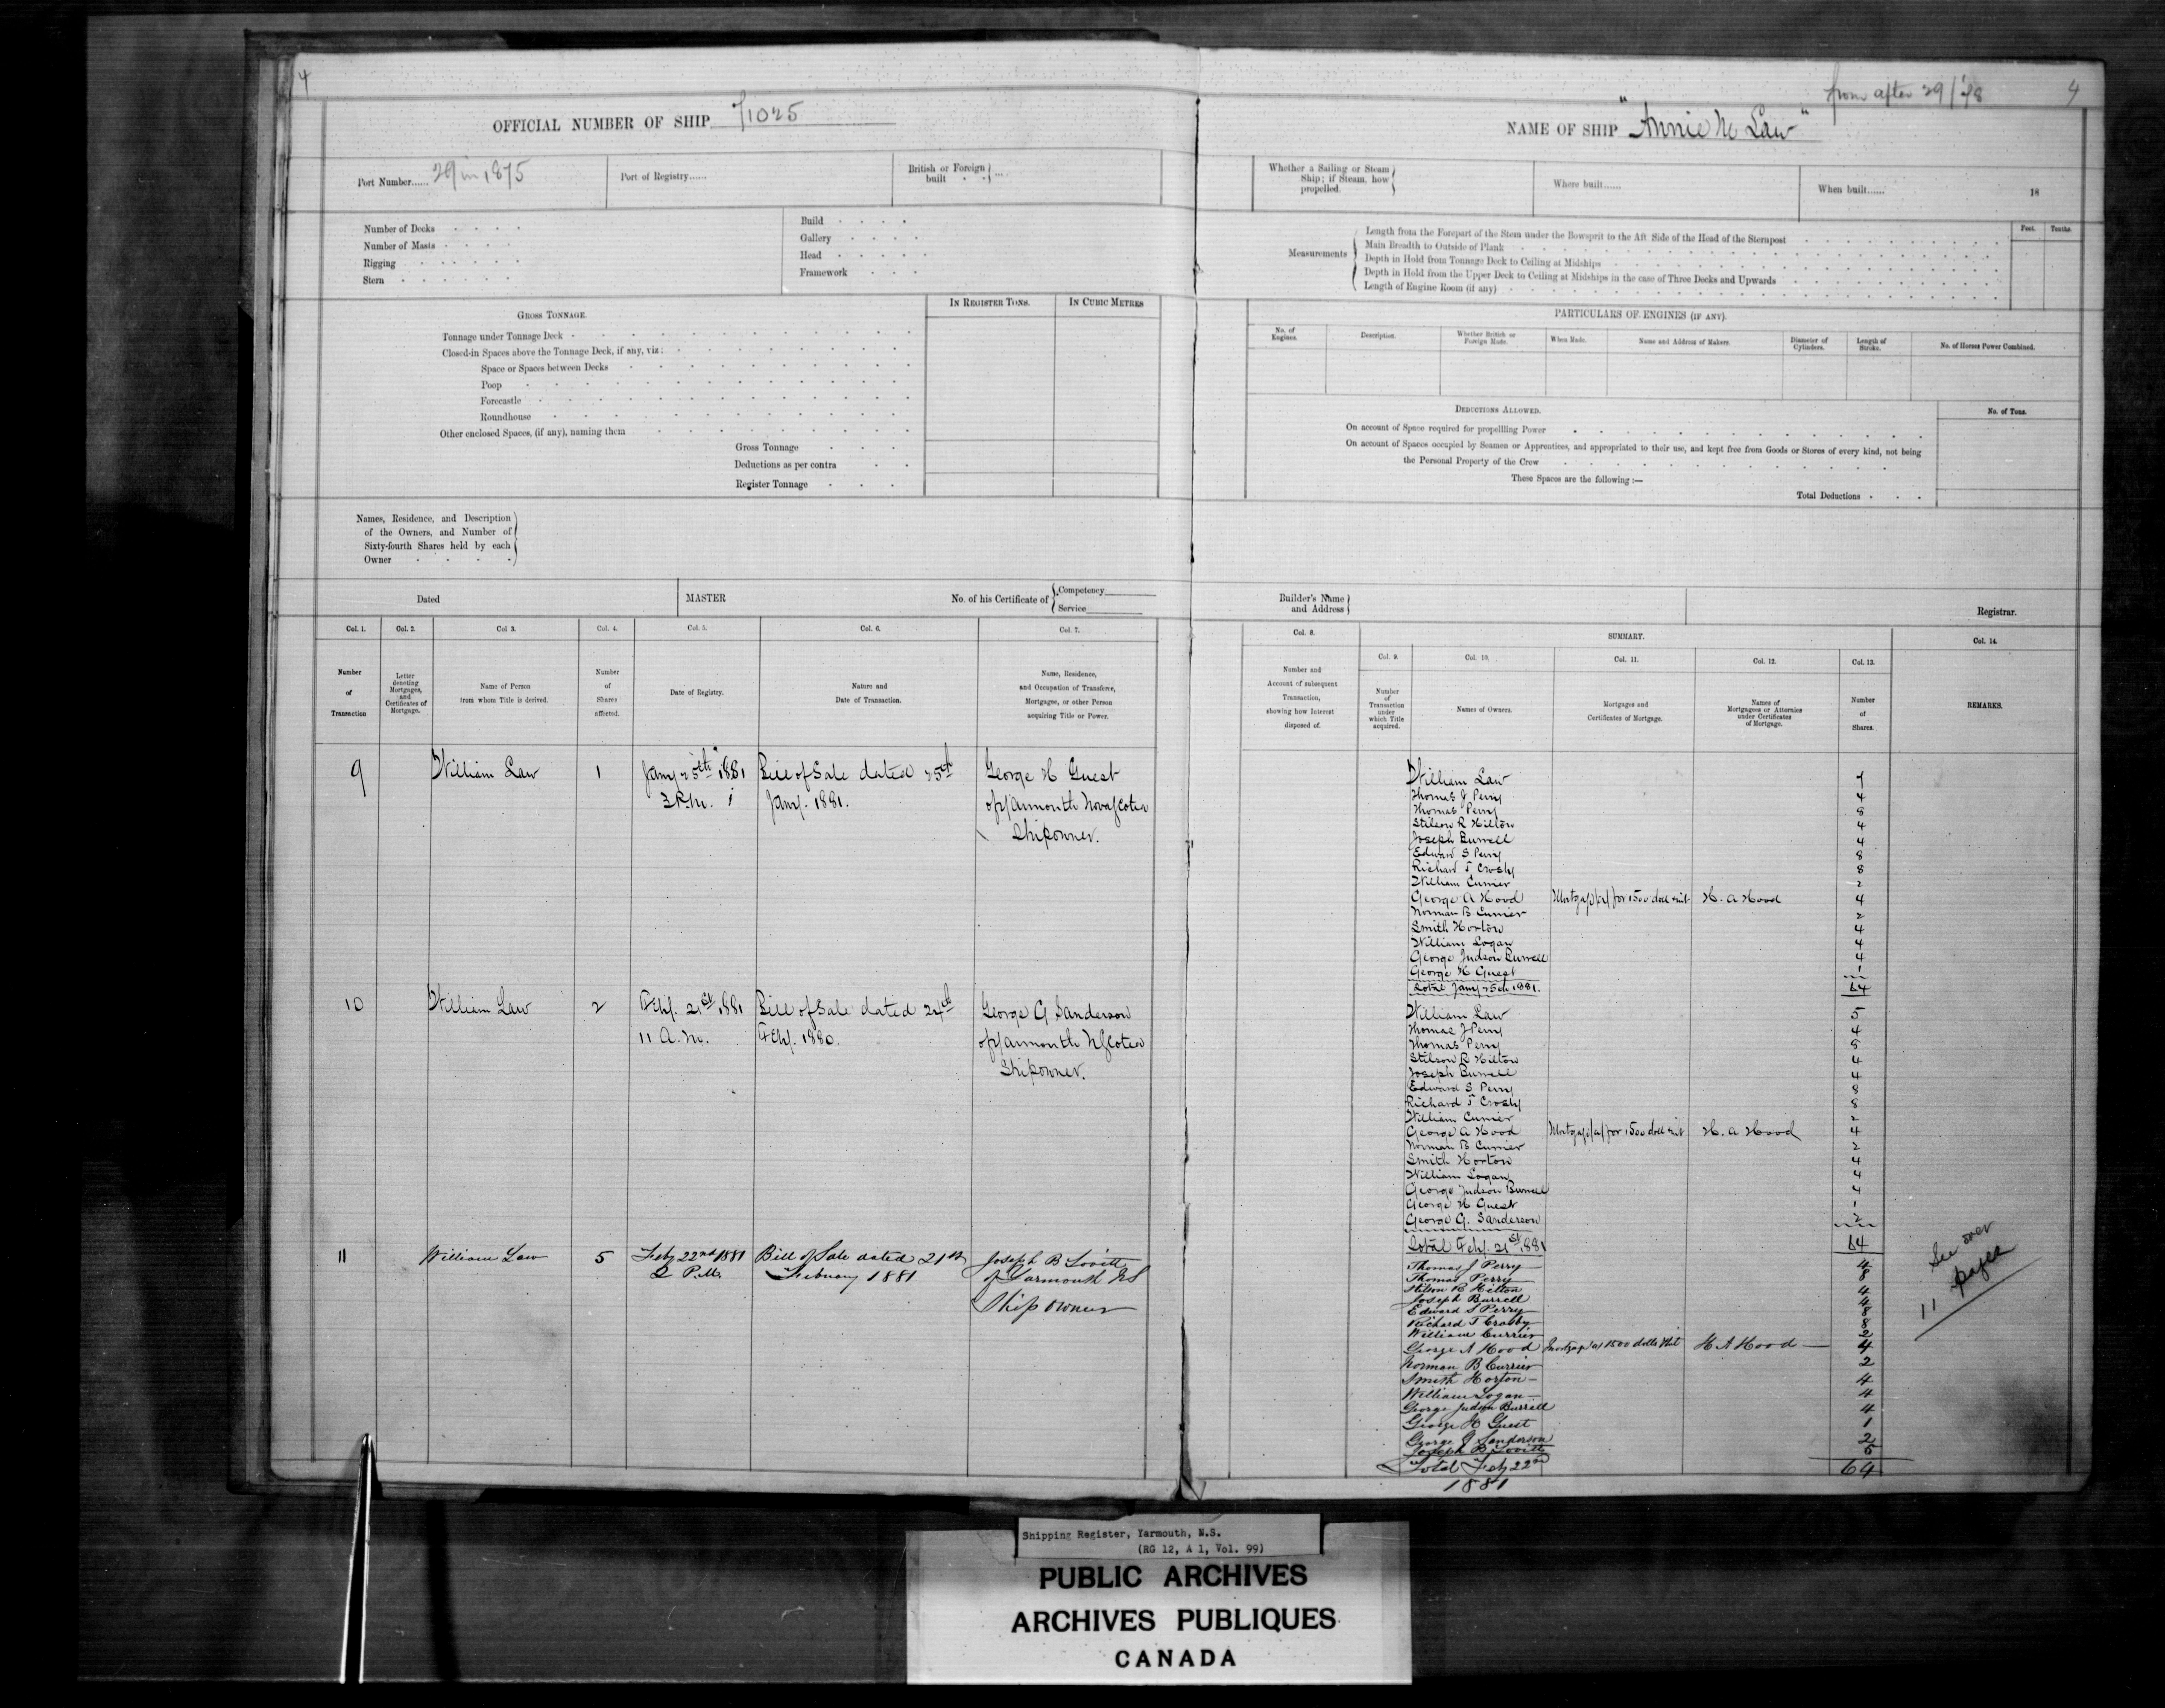 4
OFFICIAL NUMBER OF SHIP 71025
Port Number...... 29 in 1875
Port of Registry......
British or Foreign built
Number of Decks
Number of Masts
Rigging
Stern
Build
Gallery
Head
Framework
GROSS TONNAGE.
IN REGISTER TONS.
IN CUBIC METRES
Tonnage under Tonnage Deck
Closed-in Spaces above the Tonnage Deck, if any, viz:
Space or Spaces between Decks
Poop
Forecastle
Roundhouse
Other enclosed Spaces, (if any), naming them
Gross Tonnage
Deductions as per contra
Register Tonnage
Names, Residence, and Description
of the Owners, and Number of
Sixty-fourth Shares held by each
Owner
Dated
MASTER
No. of his Certificate of
Competency
Service
Col. 1.
Col. 2.
Col 3.
Col. 4.
Col. 5.
Col. 6.
Col. 7.
Number of Transaction
Letter denoting Mortgages, and Certificates of Mortgage.
Name of Person from whom Title is derived.
Number of Shares affected.
Date of Registry.
Nature and Date of Transaction.
Name, Residence, and Occupation of Transferee, Mortgagee, or other Person acquiring Title or Power.
9 William Law 1 Jany 25th 1881 Bill of Sale dated 25th George H Guest
3 P.m. Jany. 1881. of Yarmouth Nova Scotia
Shipowner.
10 William Law 2 Feby. 21st 1881 Bill of Sale dated 24th George G Sanderson
11 A.m. Feby. 1880. of Yarmouth N Scotia
Shipowner.
11 William Law 5 Feby 22nd 1881 Bill of Sale dated 21st Joseph B Lovitt
2 P.M. February 1881 of Yarmouth NS
Ship owner
from after 29/78
4
NAME OF SHIP "Annie M Law"
Whether a Sailing or Steam Ship; if Steam, how propelled.
Where built......
When built...... 18
Measurements
Feet.
Tenths.
Length from the Forepart of the Stem under the Bowsprit to the Aft Side of the Head of the Sternpost
Main Breadth to Outside of Plank
Depth in Hold from Tonnage Deck to Ceiling at Midships
Depth in Hold from the Upper Deck to Ceiling at Midships in the case of Three Decks and Upwards
Length of Engine Room (if any)
PARTICULARS OF ENGINES (IF ANY).
No. of Engines.
Description.
Whether British or Foreign Made.
When Made.
Name and Address of Makers.
Diameter of Cylinders.
Length of Stroke.
No. of Horses Power Combined.
DEDUCTIONS ALLOWED.
No. of Tons.
On account of Space required for propellling Power
On account of Spaces occupied by Seamen or Apprentices, and appropriated to their use, and kept free from Goods or Stores of every kind, not being
the Personal Property of the Crew
These Spaces are the following :—
Total Deductions
Builder's Name and Address
Registrar.
Col. 8.
SUMMARY.
Col. 9.
Col. 10.
Col. 11.
Col. 12.
Col. 13.
Col. 14.
Number and Account of subsequent Transaction, showing how Interest disposed of.
Number of Transaction under which Title acquired.
Names of Owners.
Mortgages and Certificates of Mortgage.
Names of Mortgagees or Attornies under Certificates of Mortgage.
Number of Shares.
REMARKS.
William Law 7
Thomas J Perry 4
Thomas Perry 8
Stilson R Hilton 4
Joseph Burrell 4
Edward S Perry 8
Richard T Crosby 8
William Currier 2
George A Hood Mortgage (a) for 1500 doll & int H. A Hood 4
Norman B Currier 2
Smith Horton 4
William Logan 4
George Judson Burrell 4
George H Guest 1
Total Jany 25th 1881. 64
William Law 5
Thomas J Perry 4
Thomas Perry 8
Stilson R Hilton 4
Joseph Burrell 4
Edward S Perry 8
Richard T Crosby 8
William Currier 2
George A Hood Mortgage (a) for 1500 doll & int H. A Hood 4
Norman B Currier 2
Smith Horton 4
William Logan 4
George Judson Burrell 4
George H Guest 1
George G. Sanderson 2
Total Feby. 21st 1881 64
Thomas J Perry 4
Thomas Perry 8
Stilson R Hilton 4
Joseph Burrell 4
Edward S Perry 8
Richard T Crosby 8
William Currier 2
George A Hood Mortgage (a) 1500 dolls & Int H A Hood 4
Norman B Currier 2
Smith Horton 4
William Logan 4
George Judson Burrell 4
George H Guest 1
George G Sanderson 2
Joseph B Lovitt 5
Total Feby 22nd 64
1881
See over
11 pages
Shipping Register, Yarmouth, N.S.
(RG 12, A 1, Vol. 99)
PUBLIC ARCHIVES
ARCHIVES PUBLIQUES
CANADA